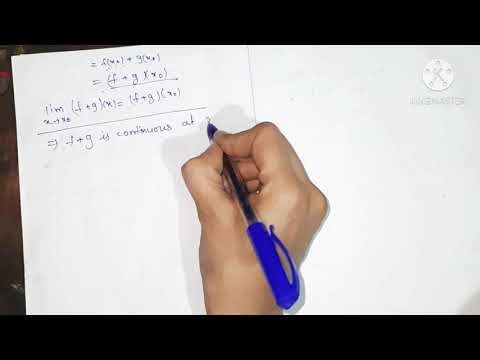 = f(x₀) + g(x₀)
= (f + g)(x₀)
lim (f+g)(x) = (f+g)(x₀)
x→x₀
⇒ f+g is continuous at
KINEMASTER